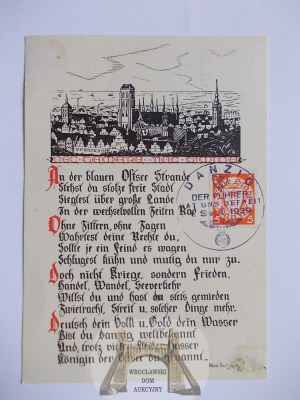 An der blauen Ostsee Strande
Stehst du stolze freie Stadt
Siegtest über große Lande
In der wechselvollen Zeiten Rad
Ohne Zittern, ohne Zagen
Wahrtest deine Rechte du,
Sollte je ein Feind es wagen
Schlugest kühn und mutig du nur zu.
Doch nicht Kriege, sondern Frieden,
Handel, Wandel, Seeverkehr
Willst du und hast du stets gemieden
Zwietracht, Streit u. solcher Dinge mehr.
Deutsch dein Volk u. Gold dein Wasser
Bist du Danzig weltbekannt
Und trotz
Königin der Ostsee du genannt.
DANZIG
DER FÜHRER
HAT UNS BEFREIT
1939
WROCŁAWSKI
DOM
AUKCYJNY